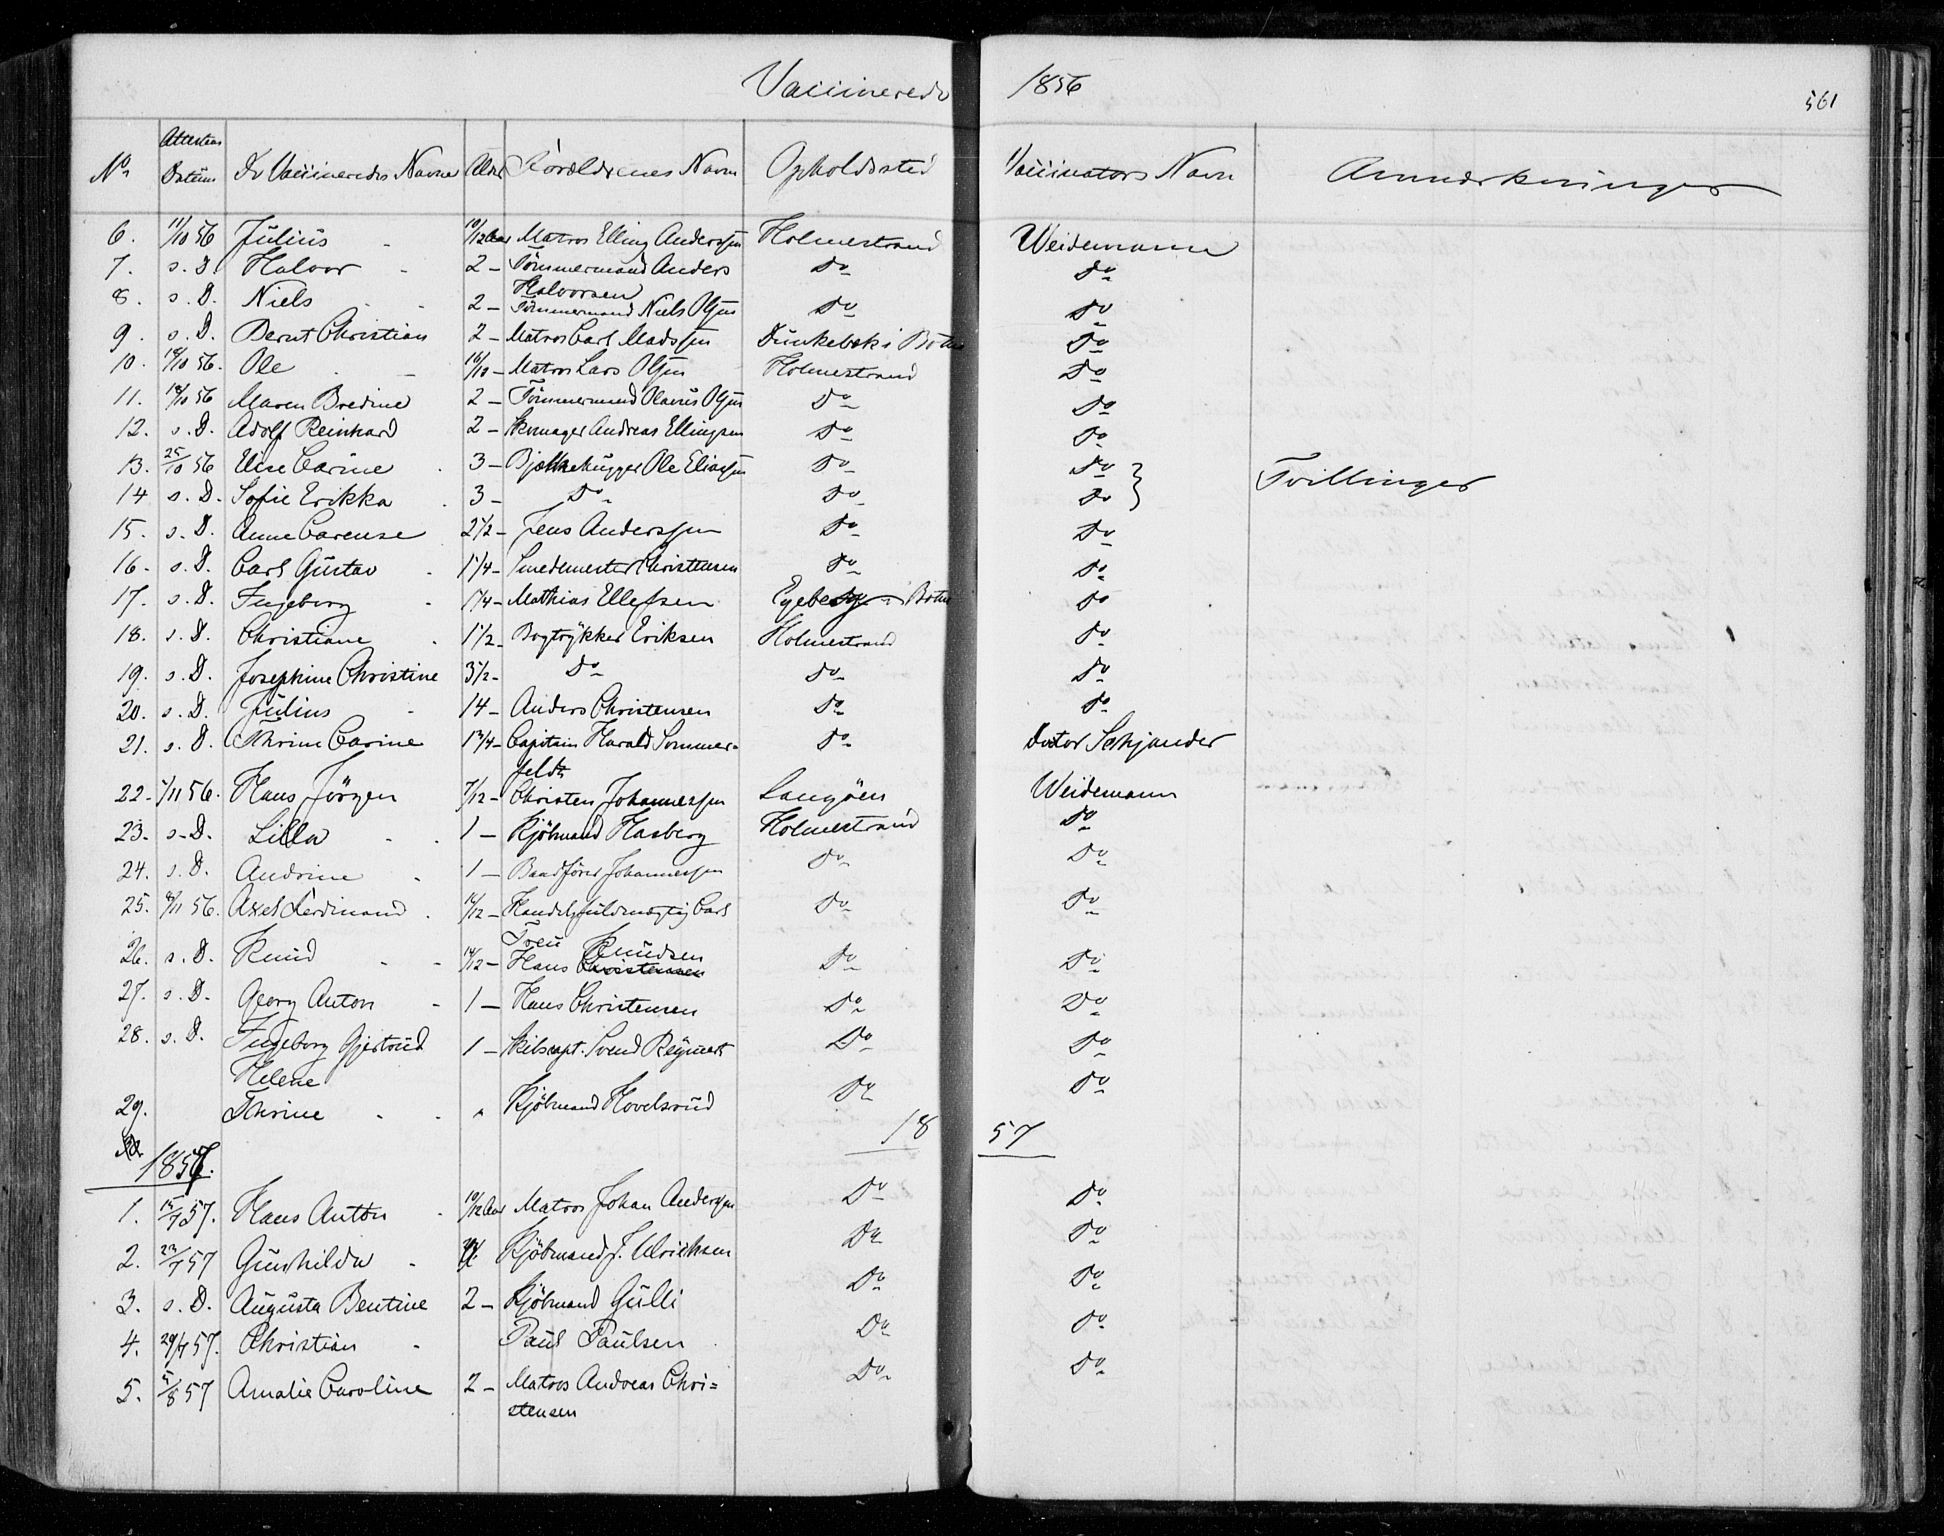 Vaccinerede 1856
561
No Attestens Datum De Vaccineredes Navne Alder Forældrenes Navn Opholdssted Vaccinators Navn Anmærkninger
6. 11/10 56 Julius 10/12 Aar Matros Elling Anderssen Holmestrand Weidemann
7. s. D. Halvor 2 - Tømmermand Anders Halvorsen Do Do
8. s. D. Niels 2 - Tømmermand Niels Olsen Do Do
9. s. D. Bernt Christian 2 - Matros Carl Madssen Dunkebek i Botne Do
10. 18/10 56. Ole Matros Lars Olsen Holmestrand Do
11. 18/10 56 Maren Bredine 2 - Tømmermand Olaves Olsen Do Do
12. s. D. Adolf Reinhard 2 - Skomager Andreas Ellingsen Do Do
13. 25/10 56 Elise Carine 3 - Bjelkehugger Ole Eliassen Do Do } Tvillinger
14 s. D. Sofie Erikka 3 - Do Do Do
15. s. D. Anne Carense 2 1/2 - Jens Anderssen Do Do
16. s. D. Carl Gustav 1 1/4 - Smedemester Christensen Do Do
17. s. D. Ingeborg 1 1/4 - Mathias Ellefsen Egeberg i Botne Do
18. s. D. Christiane 1 1/2 - Bogtrykker Eriksen Holmestrand Do
19. s. D. Josephine Christine 3 1/2 - Do Do Do
20. s. D. Julius 14 - Anders Christensen Do Do
21. s. D. Thrine Carine 1 3/4 - Capitain Harald Sommer=
feldt Do Doctor Schjander
22. 1/11 56. Hans Jörgen 7/12 - Christen Johannessen Langöen Weidemann
23. s. D. Lilla 1 - Kjöbmand Hasberg Holmestrand Do
24. s. D. Andrine 1 - Baadfører Johannessen Do Do
25. 8/11 56. Axel Ferdinand 14/12 - Handelsfuldmægtig Carl
Do Do
26. s. D. Knud 14/12 - Hans Christensen Knudsen Do Do
27. s. D. Georg Anton 1 - Hans Christensen Do Do
28. s. D. Ingeborg Gjertrud
Helene 1 - Skibscapt. Svend Reynert Do Do
29. Thrine Kjöbmand Hovelsrud Do Do
1857
1857.
1. 15/7 57. Hans Anton 10/12 Aar Matros Johan Andersen Do Do
2. 23/7 57 Gunhilda Kjöbmand J. Ulrichsen Do Do
3. s. D. Augusta Bentine 2 - Kjöbmand Gulli Do Do
4. 29/7 57. Christian Paul Paulsen Do Do
5. 5/8 57 Amalie Caroline 2 - Matros Andreas Chri=
stensen Do Do